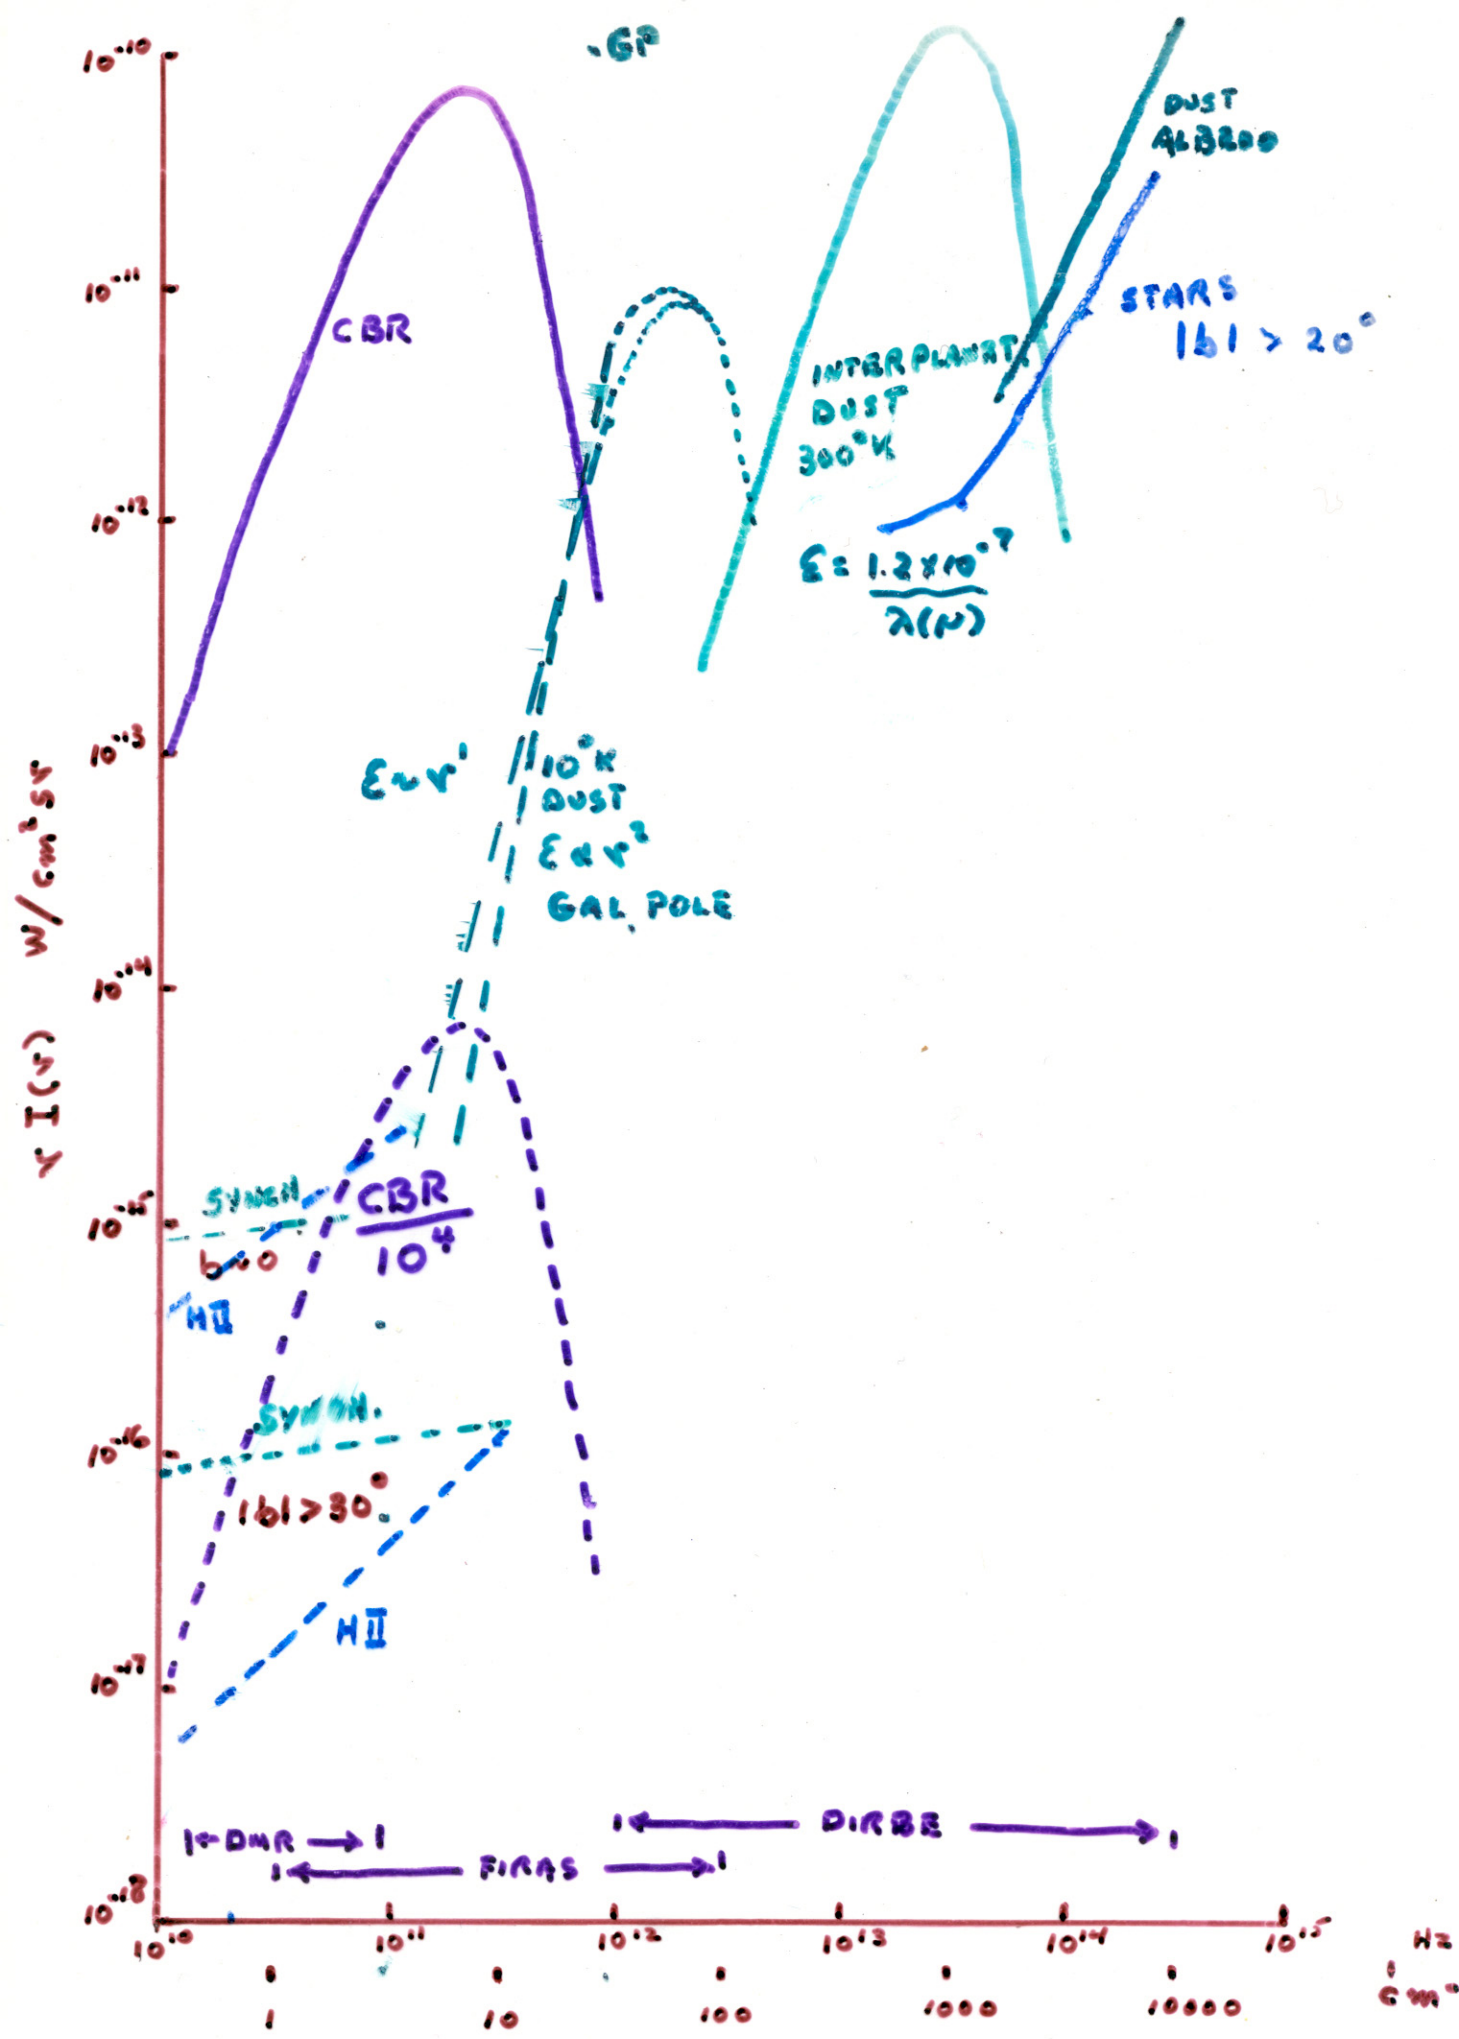 10⁻¹⁰
10⁻¹¹
10⁻¹²
10⁻¹³
10⁻¹⁴
10⁻¹⁵
10⁻¹⁶
10⁻¹⁷
10⁻¹⁸
ν I(ν) W/cm² sr
GP
CBR
DUST
ALBEDO
STARS
|b| > 20°
INTERPLANET.
DUST
300°K
ε = 1.2×10⁻⁷
λ(μ)
ε ~ ν¹
10°K
DUST
ε α ν²
GAL. POLE
SYNCH.
b~0
HII
CBR
10⁴
SYNCH.
|b| > 30°
HII
DMR
DIRBE
FIRAS
10¹⁰ 10¹¹ 10¹² 10¹³ 10¹⁴ 10¹⁵ Hz
1 10 100 1000 10000 cm⁻¹